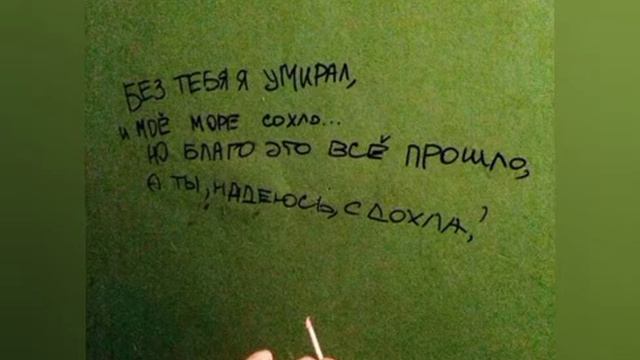 БЕЗ ТЕБЯ Я УМИРАЛ,
И МОЁ МОРЕ СОХЛО...
НО БЛАГО ЭТО ВСЁ ПРОШЛО,
А ТЫ, НАДЕЮСЬ, СДОХЛА,